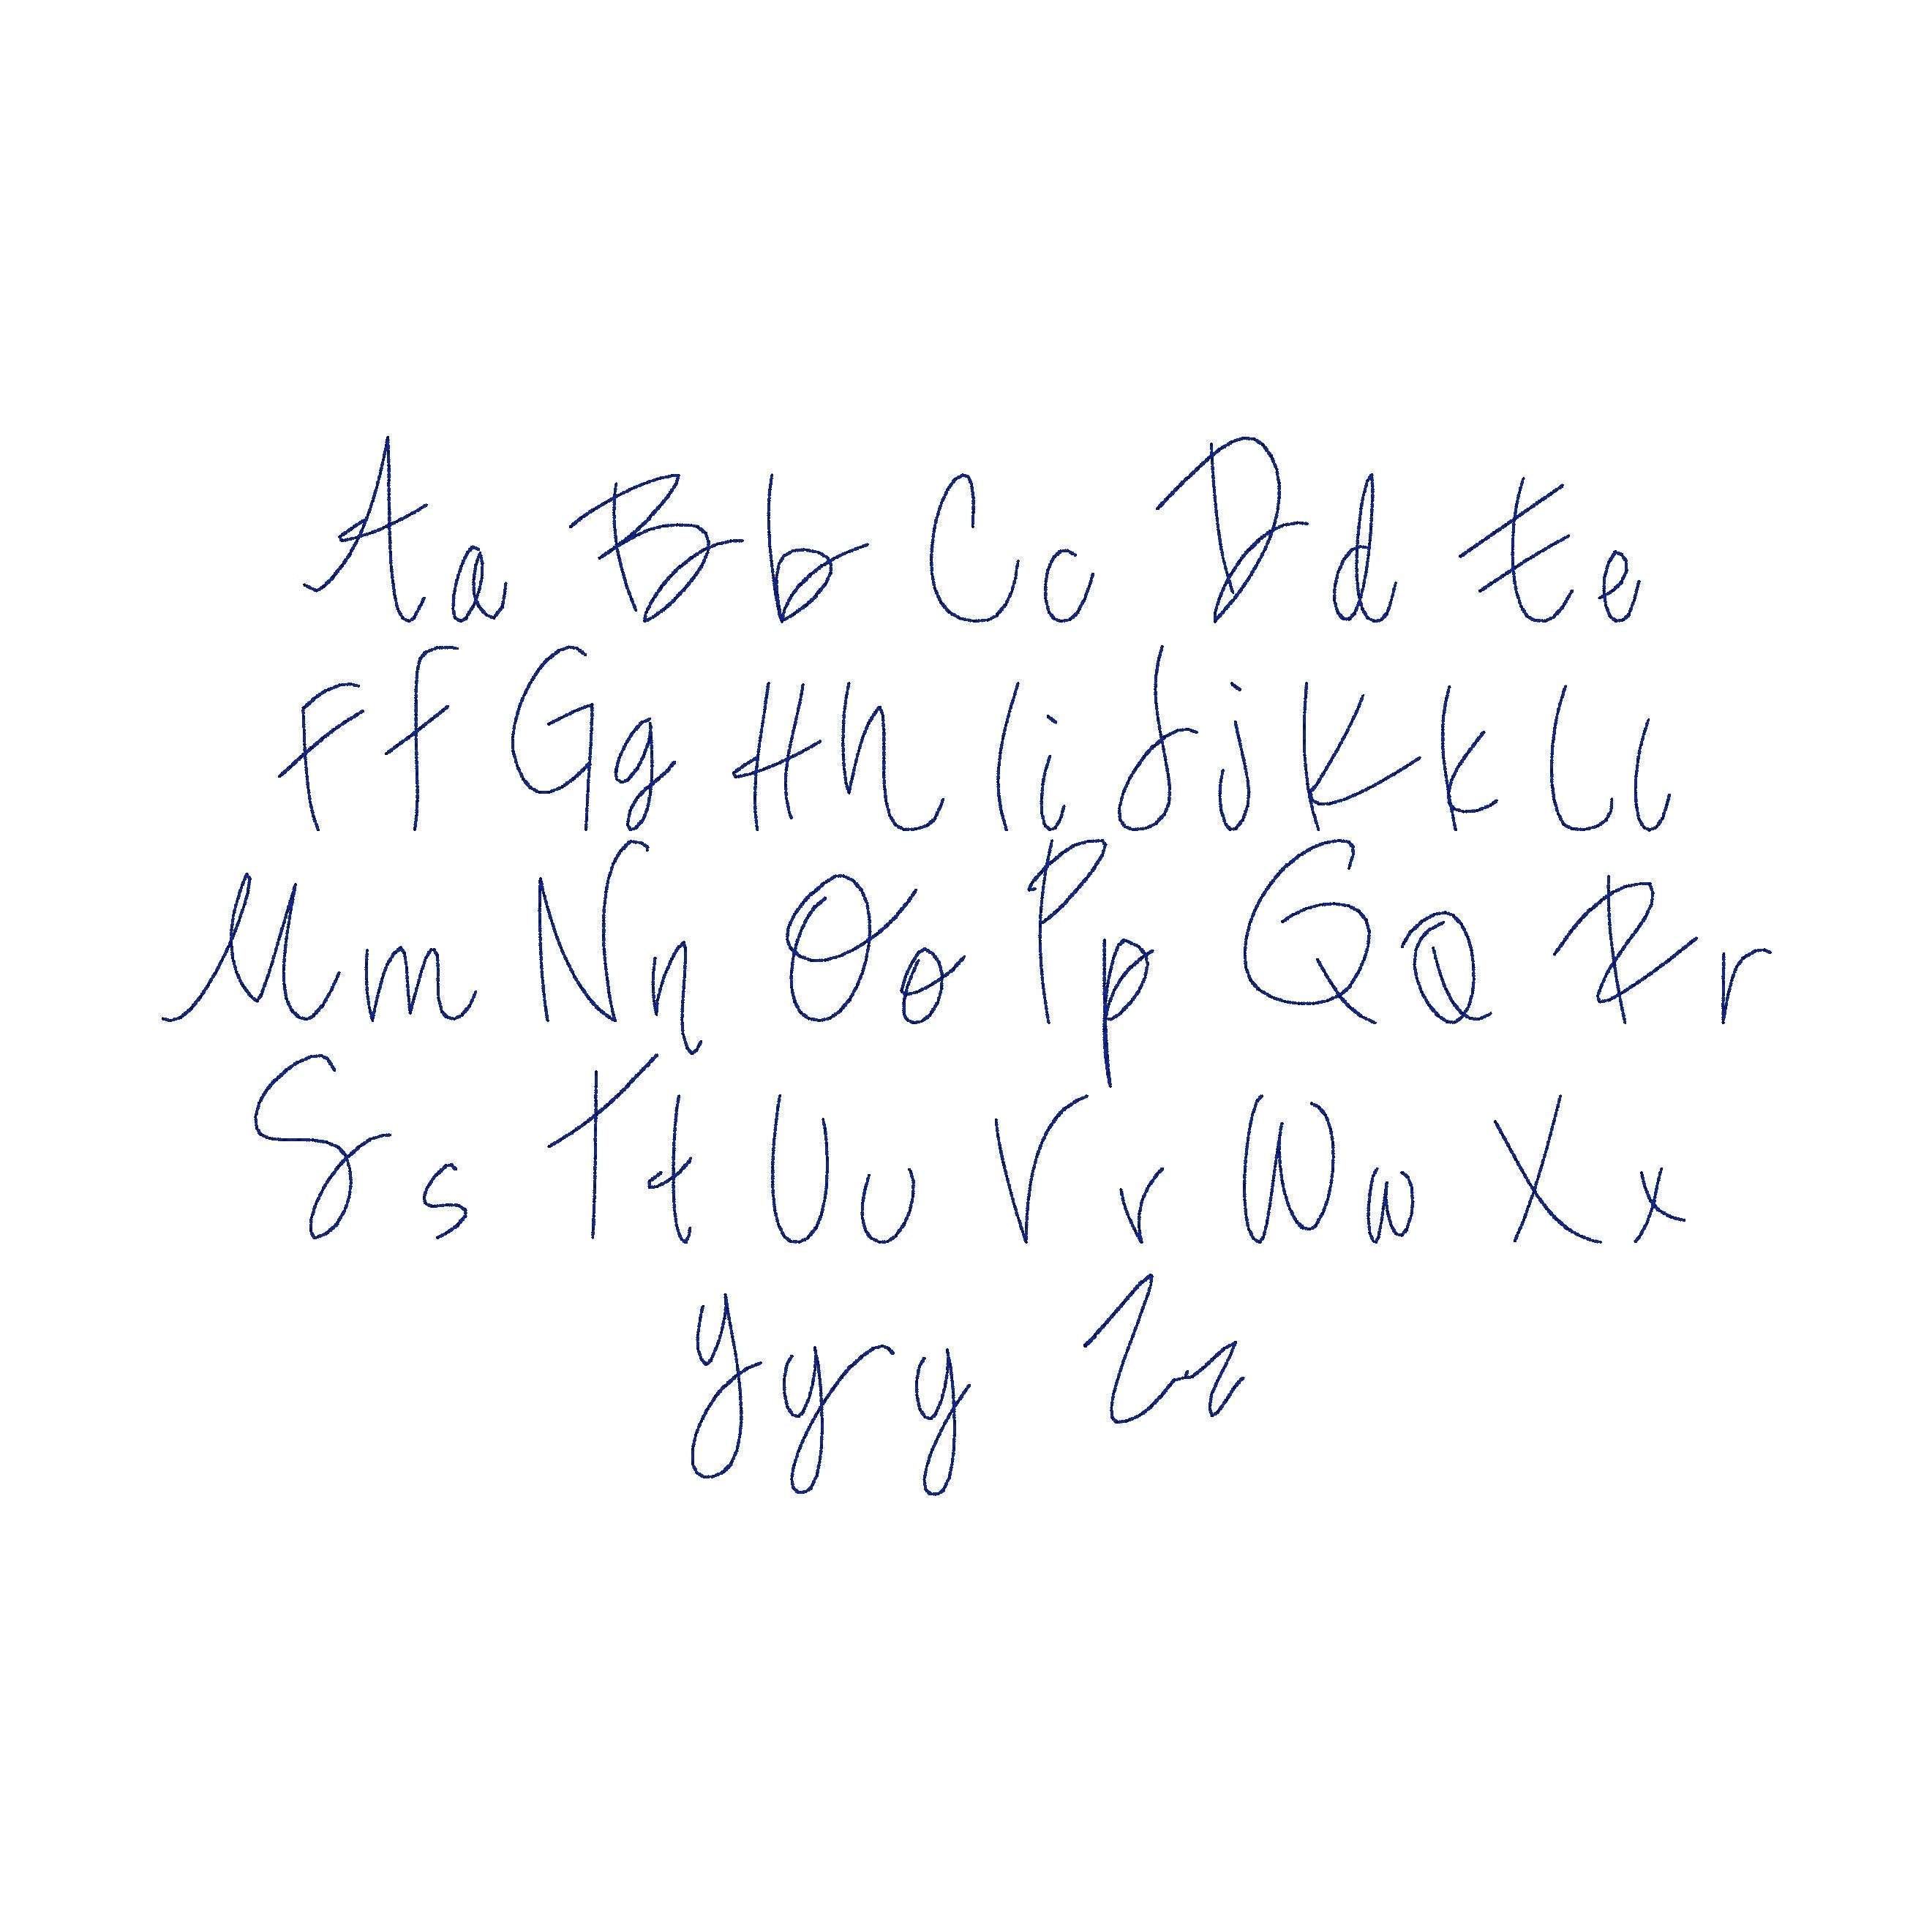 Aa Bb Cc Dd Ee
Ff Gg Hh Ii Jj Kk Ll
Mm Nn Oo Pp Qq Rr
Ss Tt Uu Vv Ww Xx
Yyy Zz